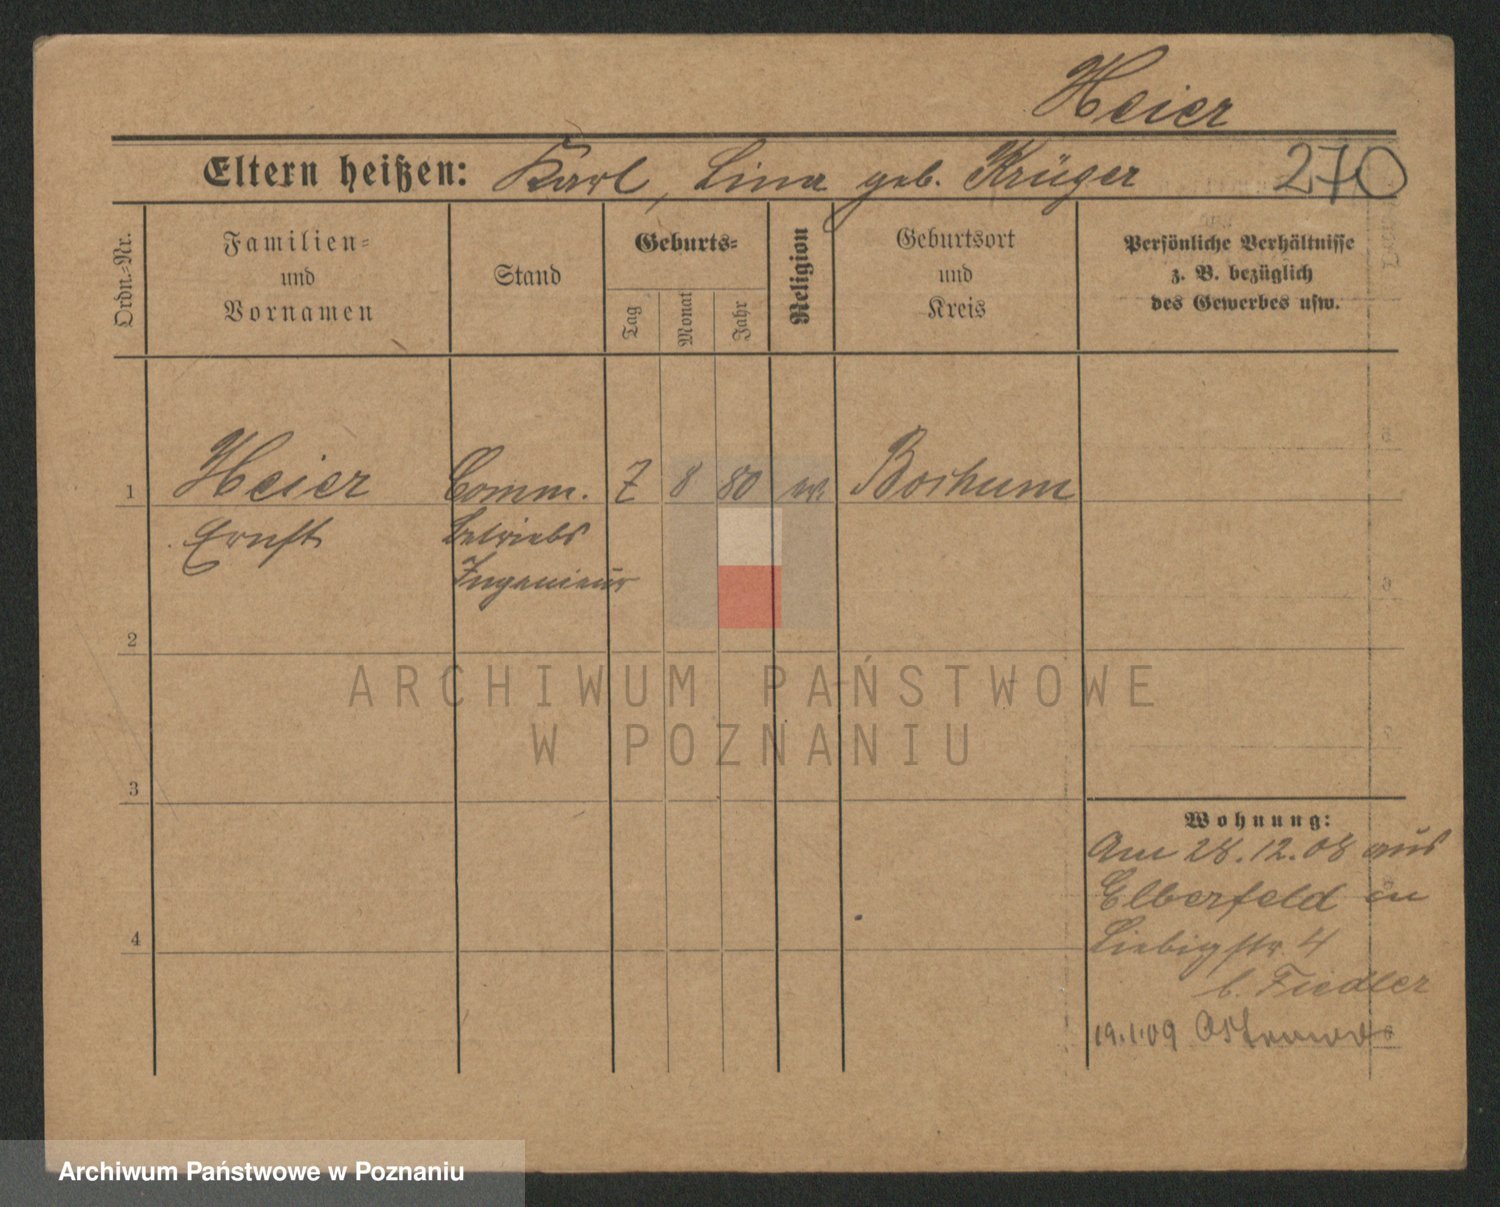 Heier
Eltern heißen: Karl, Lina geb. Krüger 270
Ordn.-Nr.
Familien-
und
Vornamen
Stand
Geburts-
Tag
Monat
Jahr
Religion
Geburtsort
und
Kreis
Persönliche Verhältnisse
z. B. bezüglich
des Gewerbes usw.
1 Heier Comm. 7 8 80 ev. Bochum
Ernst Betriebs
Ingenieur
2
3
4
Wohnung:
Am 28.12.08 aus
Elberfeld in
Liebigstr. 4
b. Fiedler
19.1.09 Ostrowo
ARCHIWUM PAŃSTWOWE
W POZNANIU
Archiwum Państwowe w Poznaniu